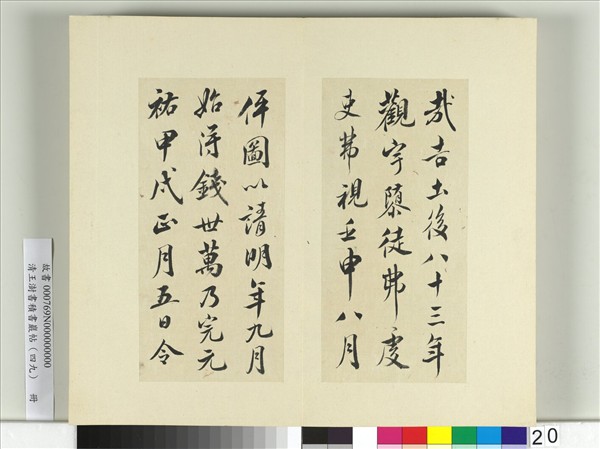 哉吉土後八十三年
觀宇隳徒弗處
吏弗視壬申八月
伻圖以請明年九月
始淂錢丗萬乃完元
祐甲戌正月五日令
故書 000769N000000000
清王澍書積書巖帖(四九) 冊
20